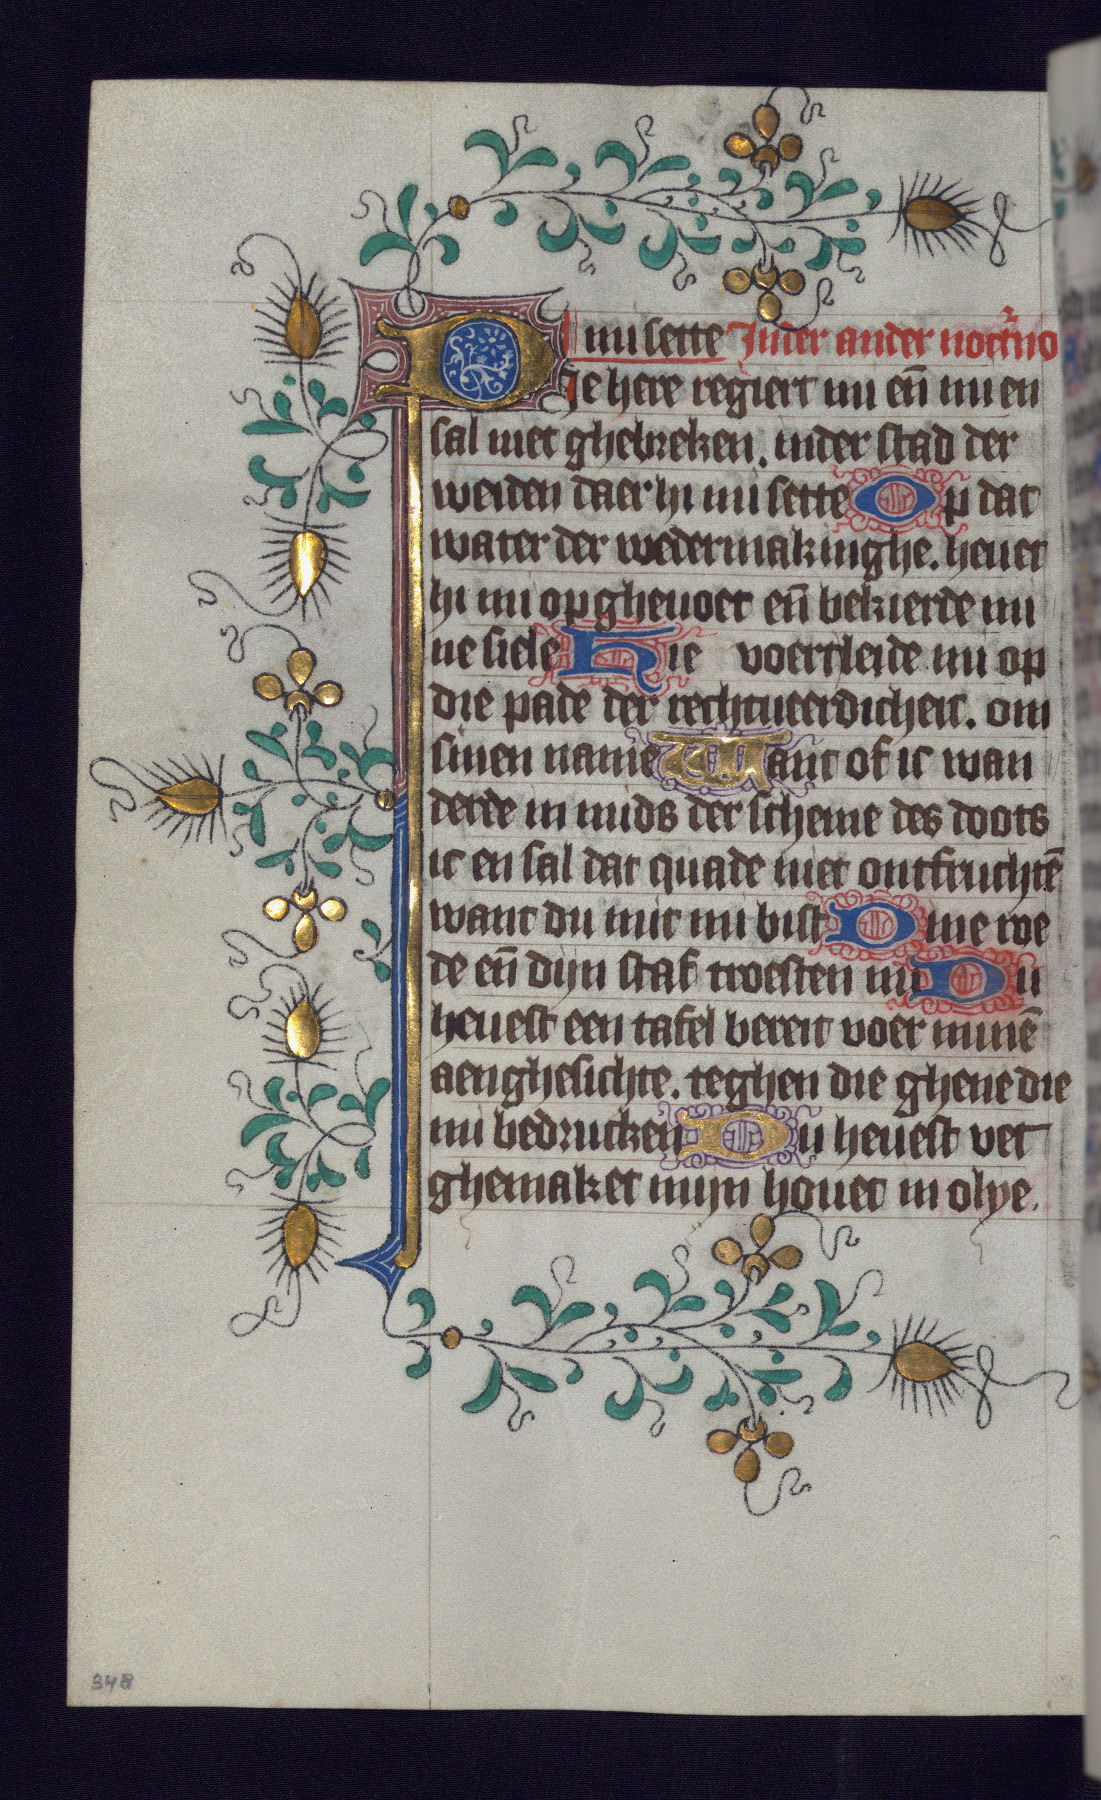 mi sette In der ander noct'no
Die here regiert mi eñ mi en
sal niet ghebreken. in der stad der
weiden daer hi mi sette Op dat
water der wedermakinghe. heuet
hi mi opgheuoet eñ bekierde mi
ne siele Hie voertleide mi op
die pade der rechtueerdicheit. om
sinen name Want of ic wan
derde in mids der scheme des doots
ic en sal dat quade niet ontfruchtē
want du mit mi bist Dine roe
de eñ dijn staf troesten mi Du
heuest een tafel bereit voer minē
aenghesichte. teghen die ghene die
mi bedrucken Du heuest vet
ghemaket mijn houet in olye.
348